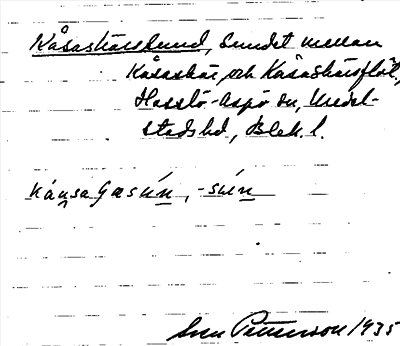 Kåsaskärssund, Sundet mellan
Kåsaskär och Kåsaskärsflöt,
Hasslö-Aspö sn, Medel-
stads hd, Blek. l.
-sún
Sven Petterson 1935